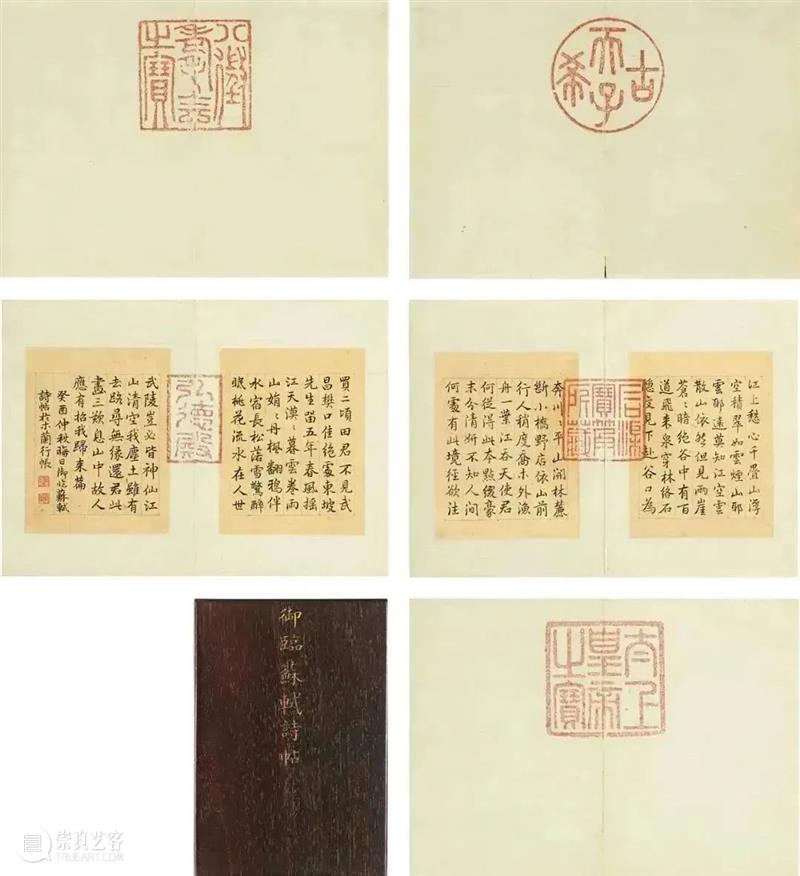 古希天子
八徵
耄念
之寶
石渠
寶笈
所藏
江上愁心千疊山浮
空積翠如雲煙山耶
雲耶遠莫知江空雲
散山依然但見兩崖
蒼〻暗絕谷中有百
道飛来泉穿林絡石
隱復見下赴谷口為
奔川〻平山開林麓
斷小橋野店依山前
行人稍度喬木外漁
舟一葉江吞天使君
何從得此本點綴豪
末分清妍不知人間
何處有此境徑欲往
弘德殿
買二頃田君不見武
昌樊口佳絕處東坡
先生留五年春風摇
江天漠〻暮雲卷雨
山娟〻丹楓翻鴉伴
水宿長松落雪驚醉
眠桃花流水在人世
武陵豈必皆神仙江
山清空我塵土雖有
去路尋無緣還君此
畫三歎息山中故人
應有招我歸來篇
癸酉仲秋晦日御臨蘇軾
詩帖於木蘭行帳
太上
皇帝
之寶
御臨蘇軾詩帖
崇真艺客
TRUEART.COM